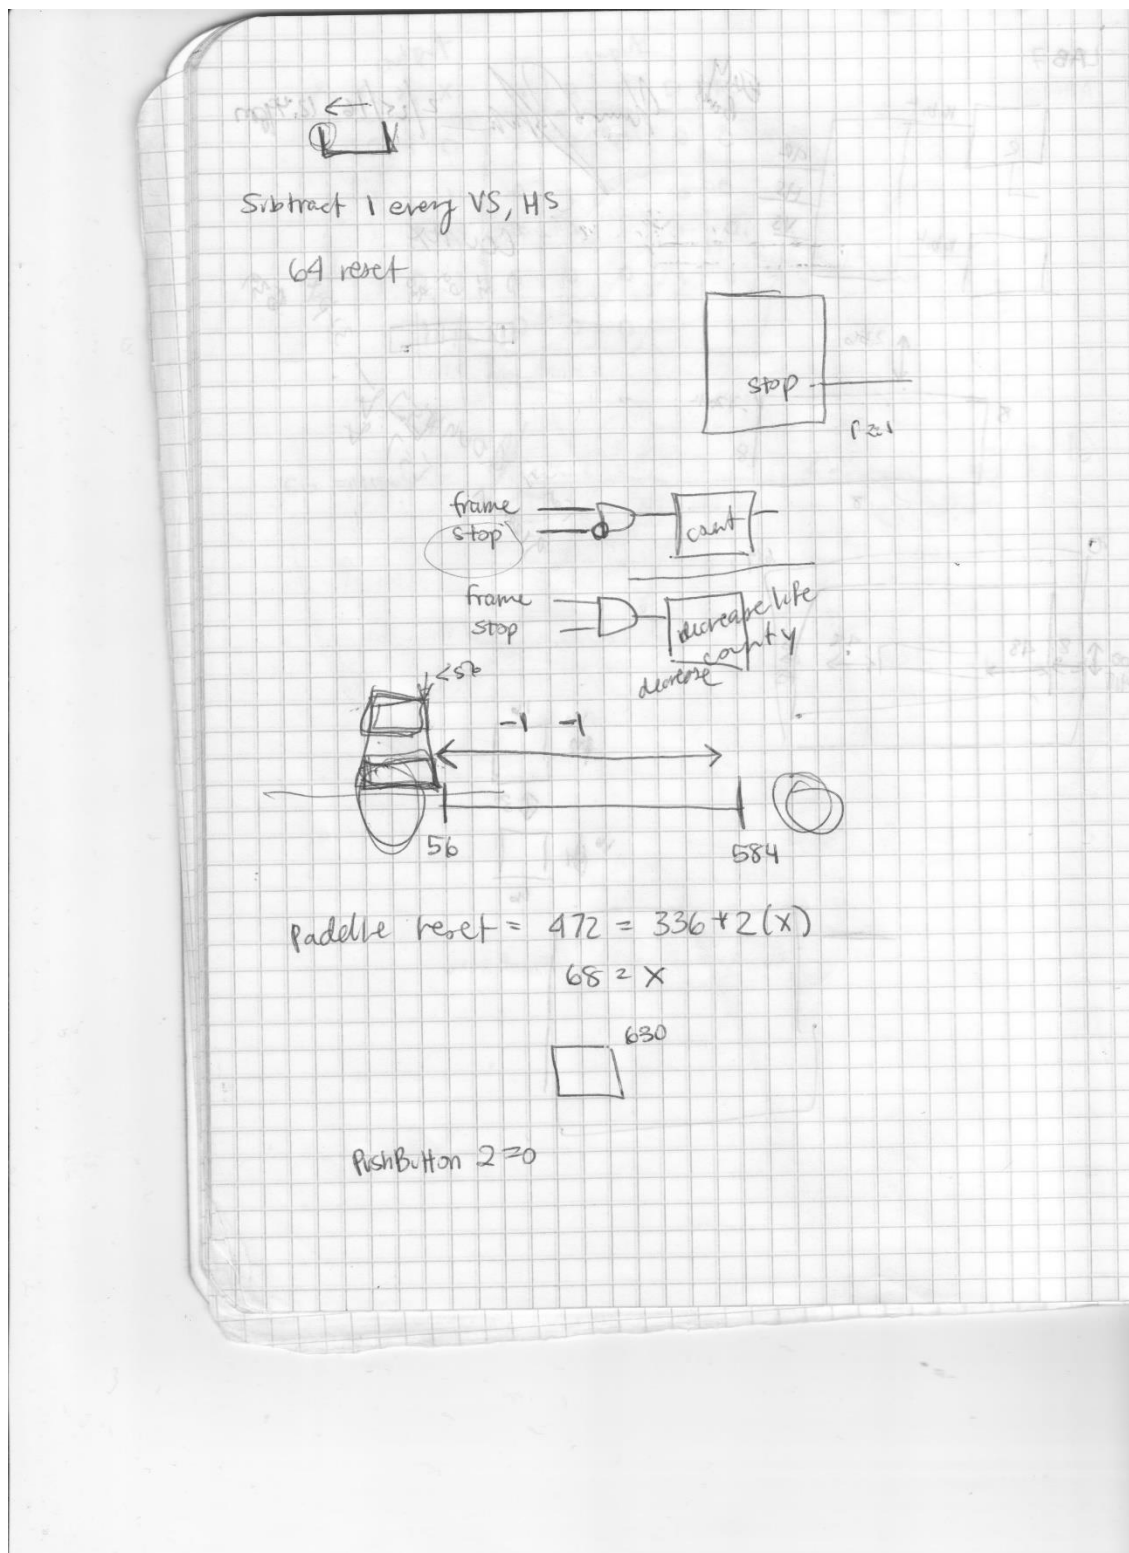 Subtract 1 every VS, HS
64 reset
stop
frame
stop
count
frame
stop
decrease life
county
decrease
<56
-1 -1
56
584
Paddle reset = 472 = 336 + 2(x)
68 = x
630
PushButton 2=0